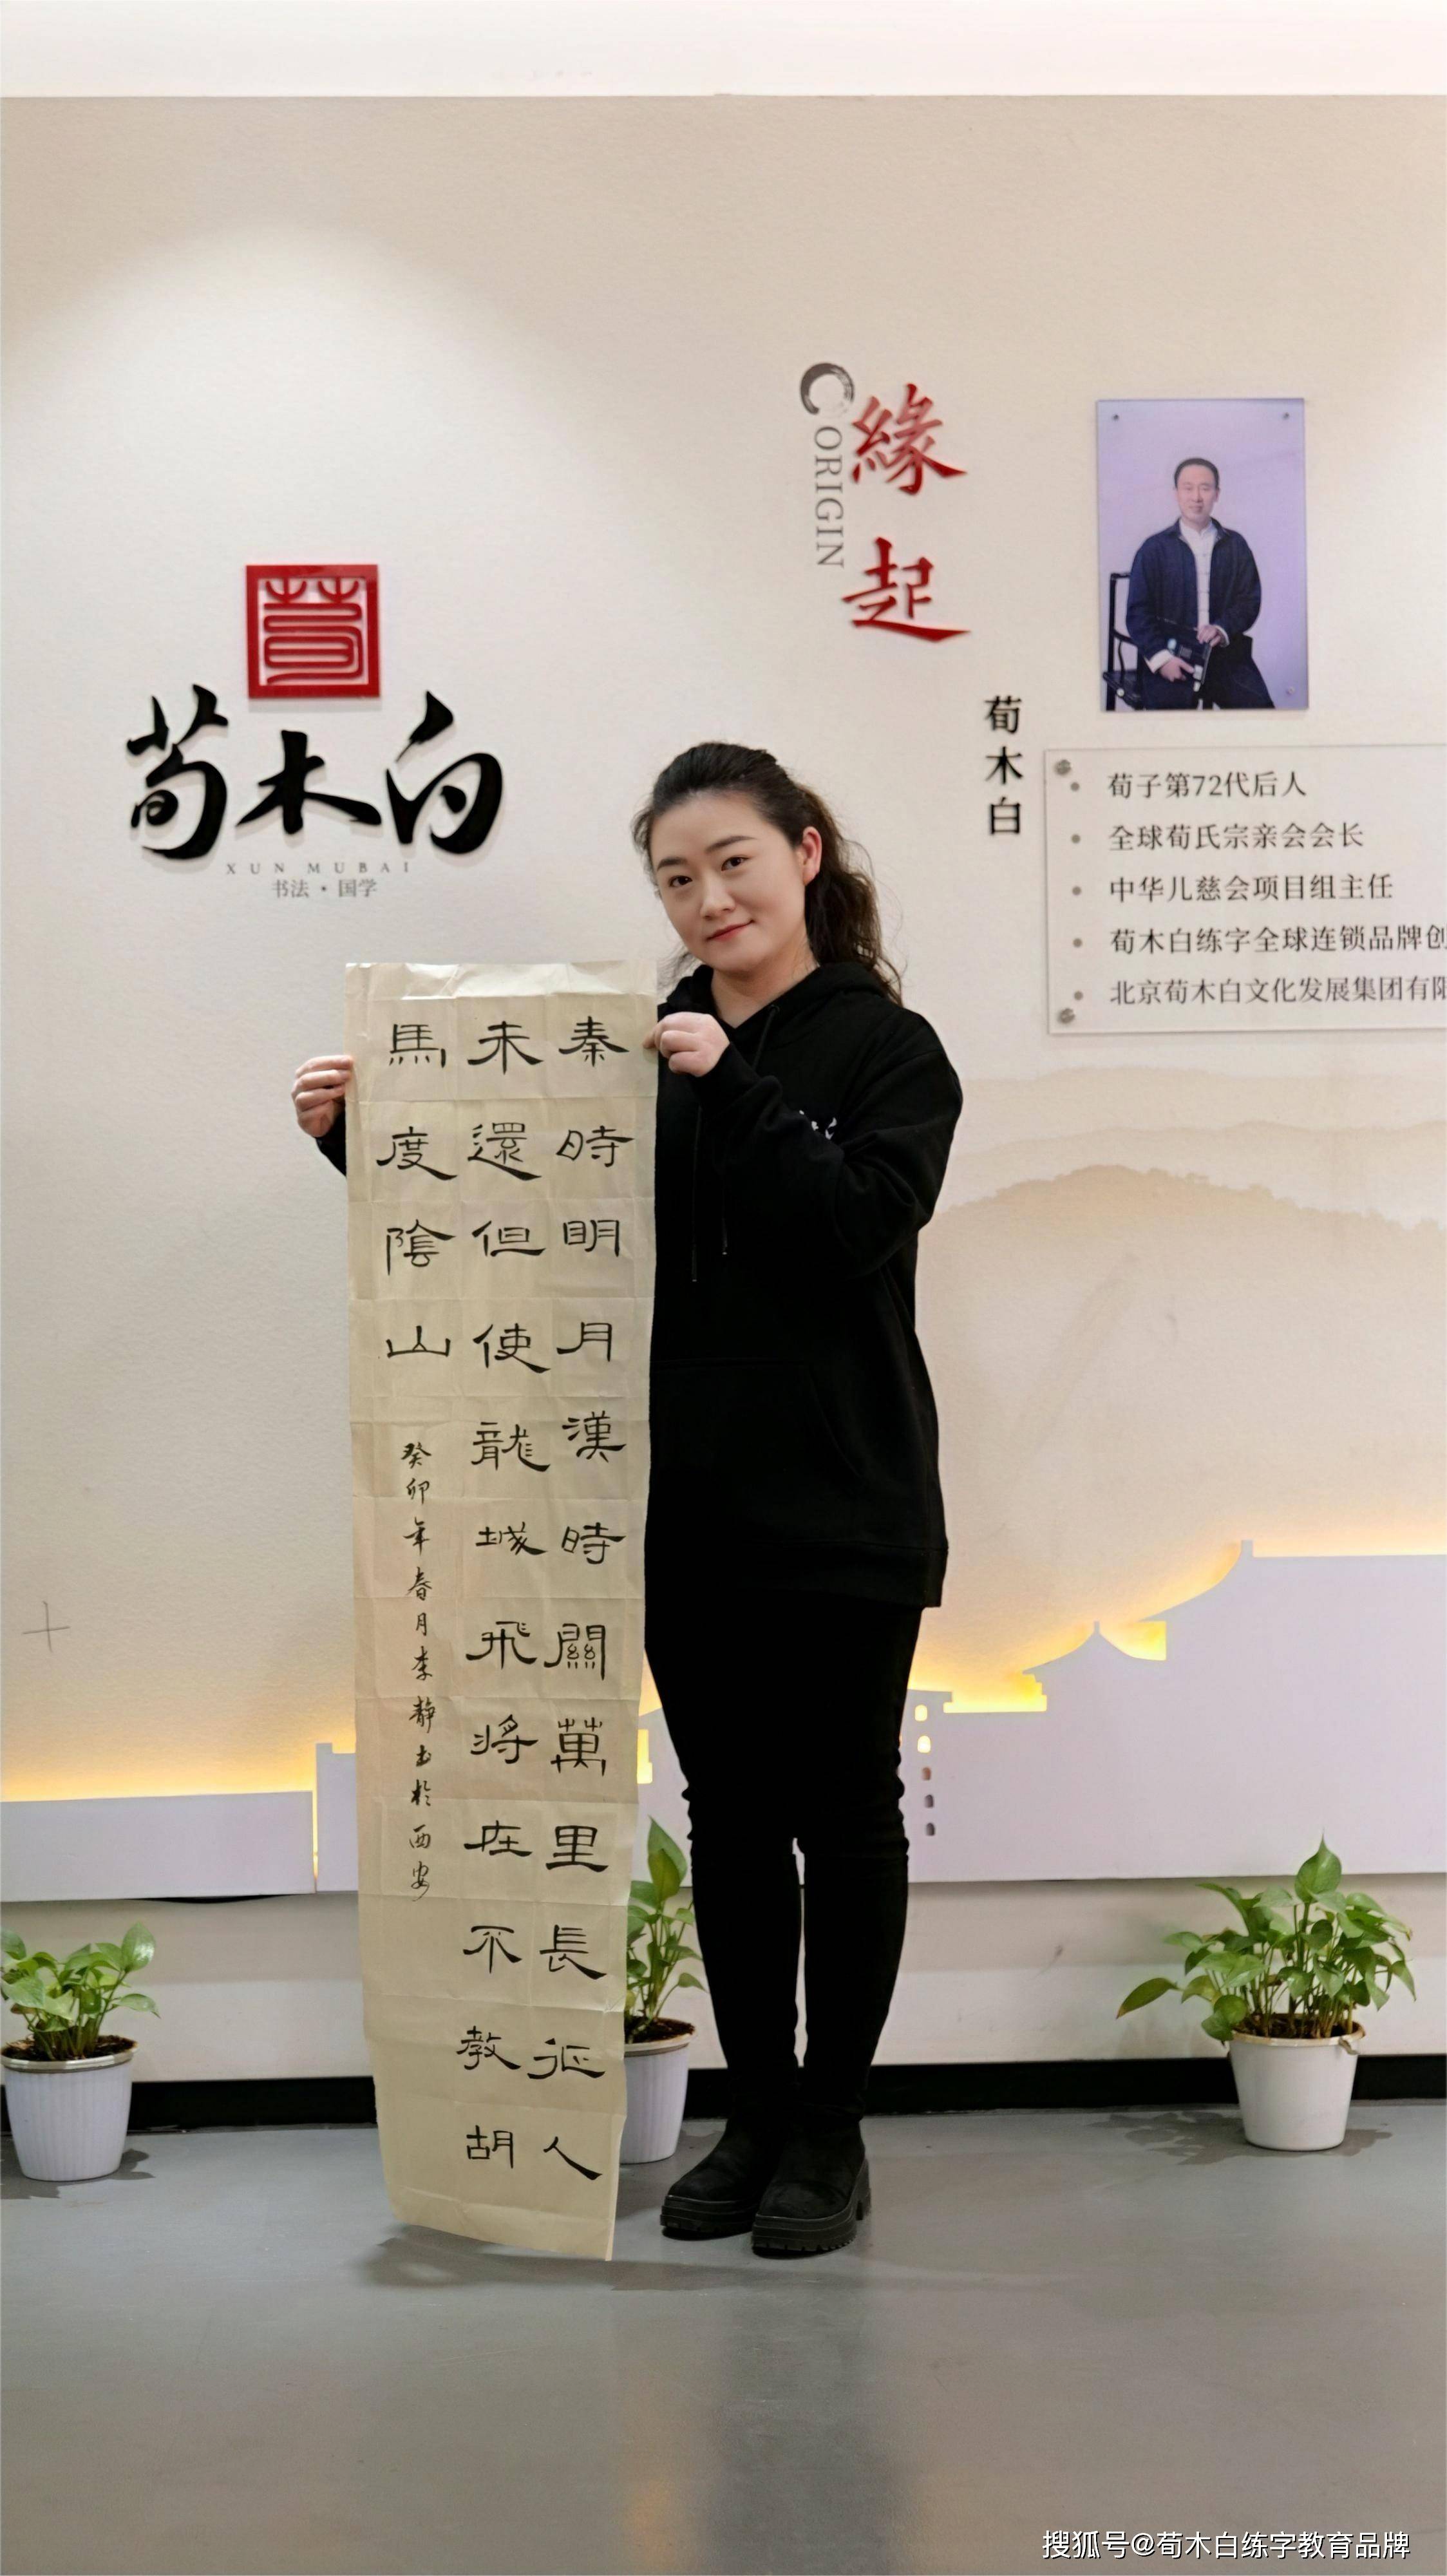 緣起
ORIGIN
荀
荀木白
XUN MUBAI
书法·国学
荀木白
荀子第72代后人
全球荀氏宗亲会会长
中华儿慈会项目组主任
荀木白练字全球连锁品牌创
北京荀木白文化发展集团有限
秦時明月漢時關萬里長征人
未還但使龍城飛將在不教胡
馬度陰山
癸卯年春月李静书於西安
搜狐号@荀木白练字教育品牌